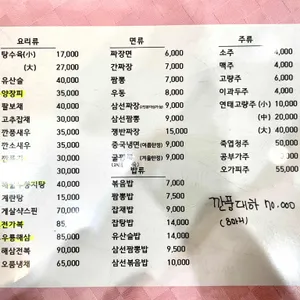 요리류
탕수육(小) 17,000
(大) 27,000
유산슬 40,000
양장피 35,000
팔보채 40,000
고추잡채 30,000
깐풍새우 35,000
깐소새우 35,000
35,000
40,000
계란탕 15,000
게살샥스핀 70,000
전가복 85,
우롱해삼 80,000
해삼전복 90,000
오룡냉채 65,000
면류
짜장면 6,000
간짜장 7,000
짬뽕 7,000
우동 8,000
삼선짜장 9,000
삼선짬뽕 9,000
쟁반짜장 15,000
중국냉면(여름한정) 9,000
(겨울한정) 9,000
밥류
볶음밥 7,000
짬뽕밥 7,500
잡채밥 9,000
잡탕밥 14,000
유산슬밥 14,000
삼선짬뽕밥 9,500
삼선볶음밥 10,000
주류
소주 4,000
맥주 4,000
고량주 6,000
이과두주 4,000
연태고량주 (小) 10,000
(中) 20,000
(大) 40,000
죽엽청주 50,000
공부가주 35,000
오가피주 55,000
깐풍대하 70,000
(8마리)